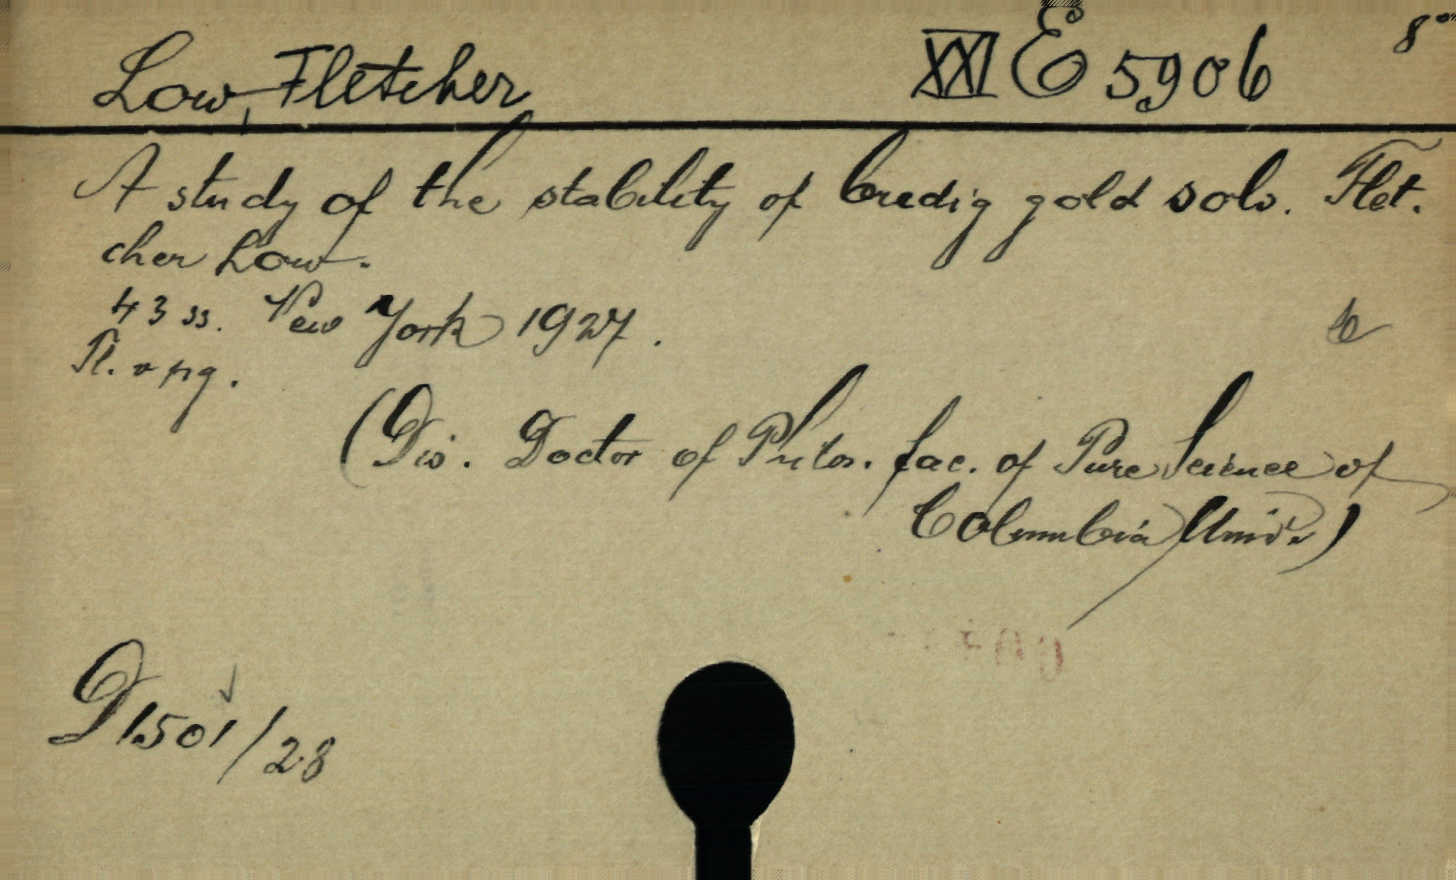 Low, Fletcher XXI E 5906 8°
A study of the stability of bredig gold sols. Flet.
cher Low.
43 ss. New York 1927.
Tl. v pg.
(Dis. Doctor of Philos. fac. of Pure Science of
Columbia Univ.)
D 1501/28